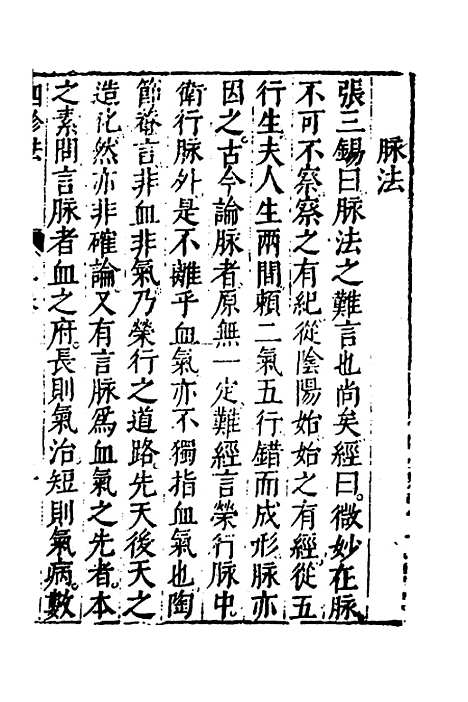 脉法
張三錫曰脉法之難言也尚矣經曰微妙在脉
不可不察察之有紀從陰陽始始之有經從五
行生夫人生兩間頼二氣五行錯而成形脉亦
因之古今論脉者原無一定難經言榮行脉中
衛行脉外是不離乎血氣亦不獨指血氣也陶
節菴言非血非氣乃榮行之道路先天後天之
造化然亦非確論又有言脉爲血氣之先者本
之素問言脉者血之府長則氣治短則氣病數
四診法